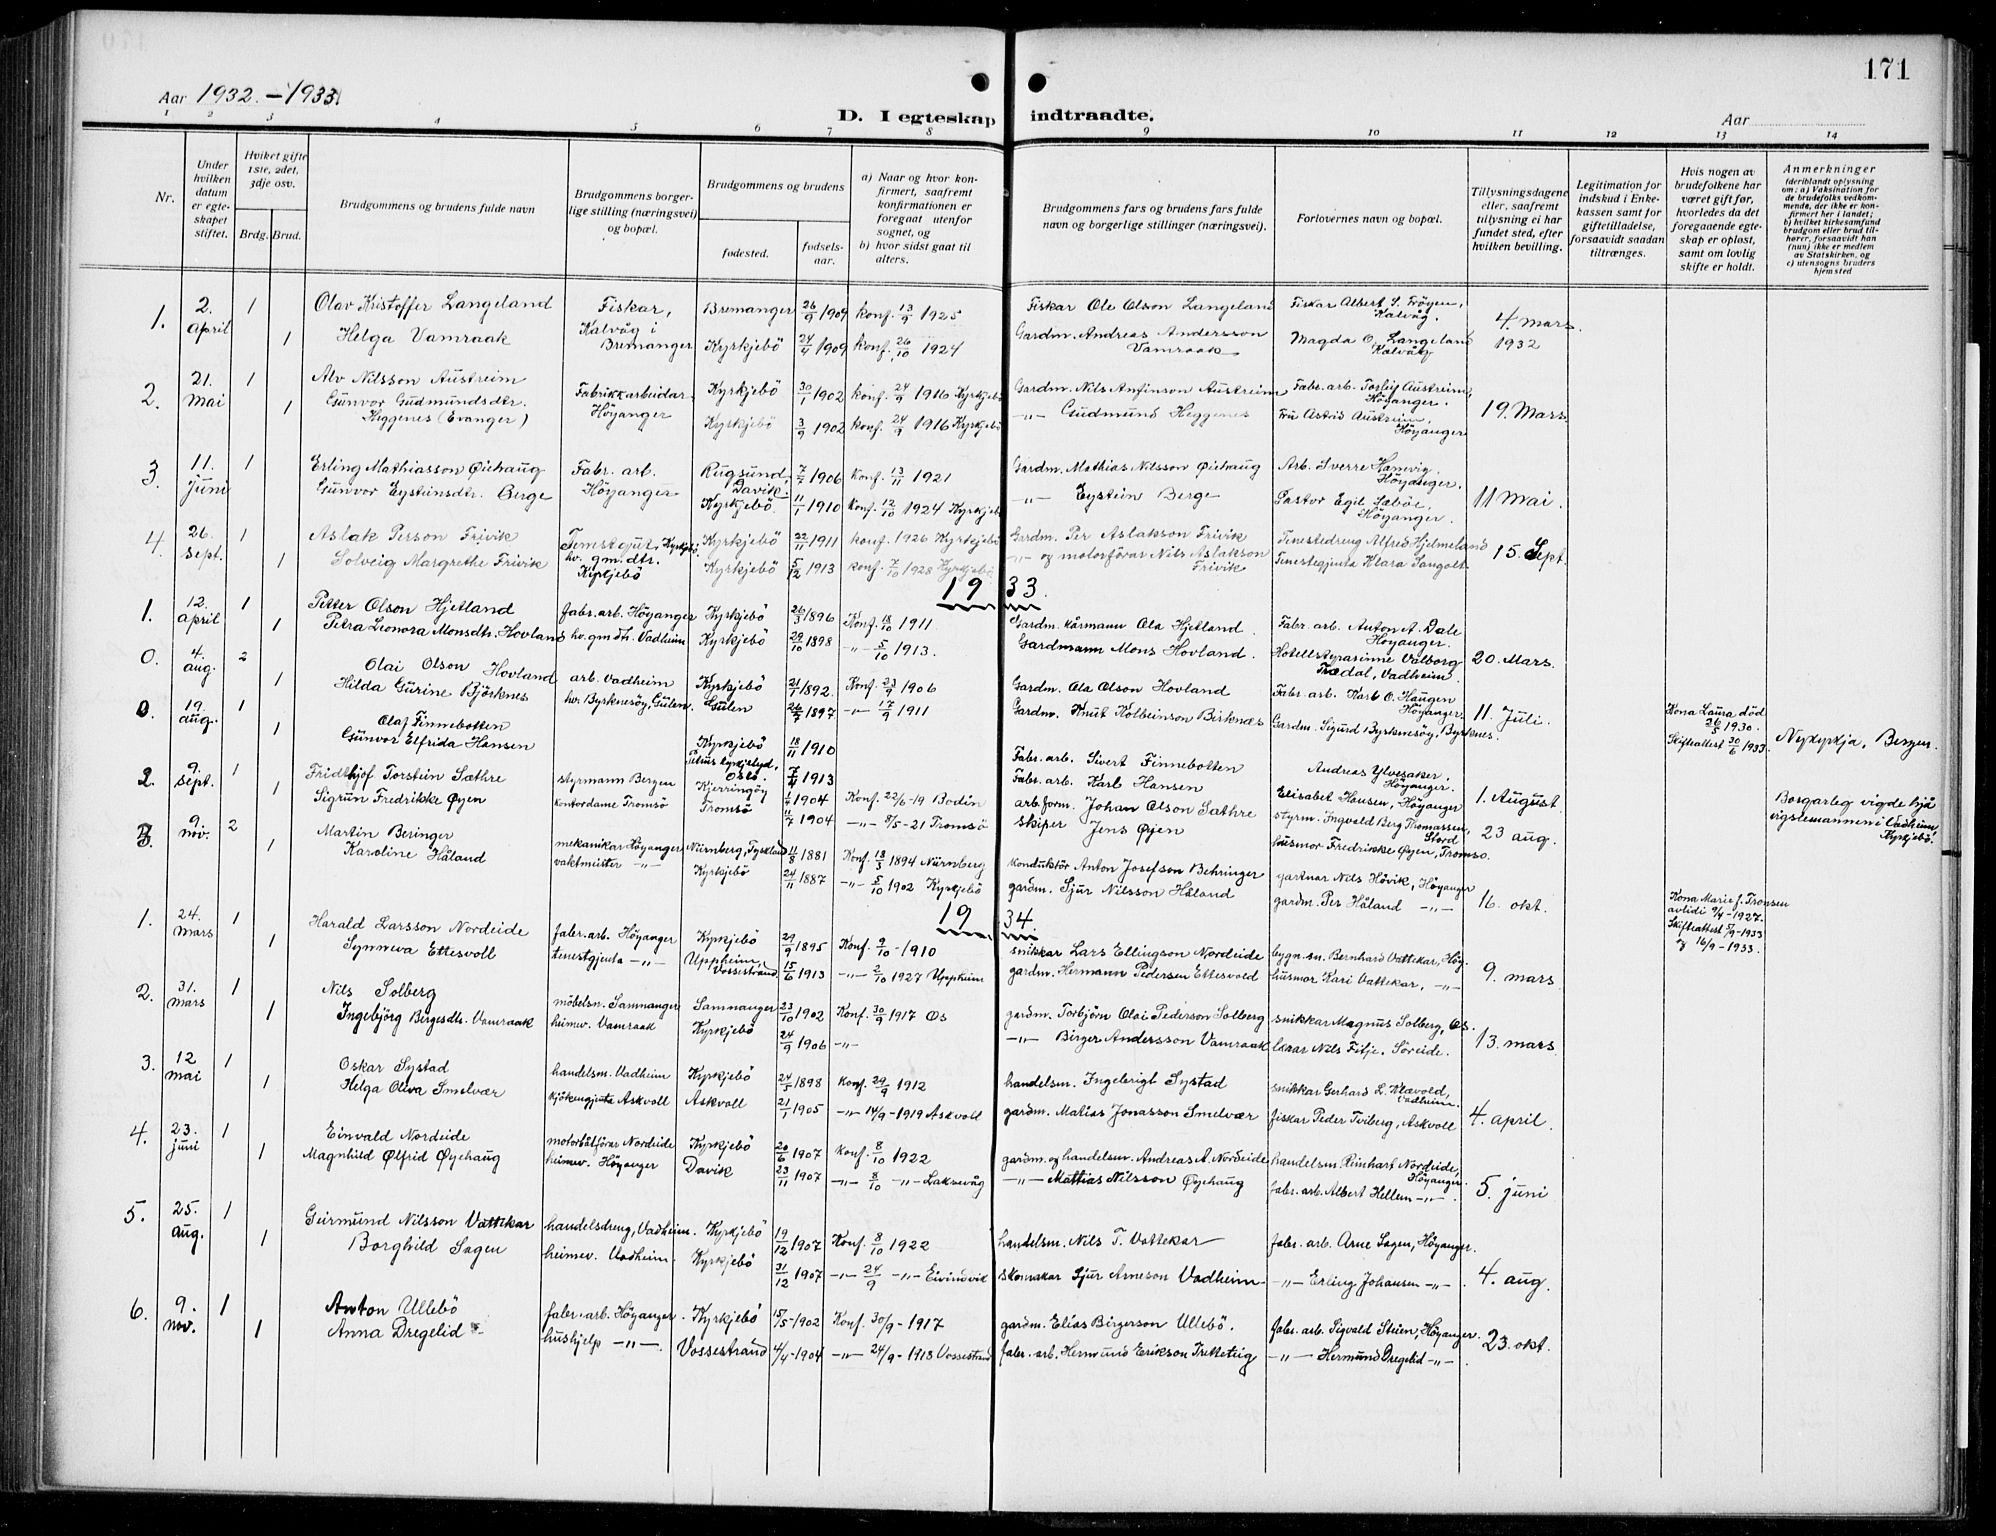 171
Aar 1932.-1933
D. I egteskap indtraadte.
Aar
1 2 3 4 5 6 7 8 9 10 11 12 13 14
Nr.
Under hvilken datum er egteskapet stiftet.
Hvilket gifte 1ste, 2det, 3dje osv.
Brdg. Brud.
Brudgommens og brudens fulde navn
Brudgommens borgerlige stilling (næringsvei) og bopæl.
Brudgommens og brudens
fødested.
fødselsaar.
a) Naar og hvor konfirmert, saafremt konfirmationen er foregaat utenfor sognet, og
b) hvor sidst gaat til alters.
Brudgommens fars og brudens fars fulde navn og borgerlige stillinger (næringsvei).
Forlovernes navn og bopæl.
Tillysningsdagene eller, saafremt tillysning ei har fundet sted, efter hvilken bevilling.
Legitimation for indskud i Enkekassen samt for giftetilladelse, forsaavidt saadan tiltrænges.
Hvis nogen av brudefolkene har været gift før, hvorledes da det foregaaende egteskap er opløst, samt om lovlig skifte er holdt.
Anmerkninger
(deriblandt oplysning om: a) Vaksination for de brudefolks vedkommende, der ikke er konfirmert her i landet; b) hvilket kirkesamfund brudgom eller brud tilhører, forsaavidt han (hun) ikke er medlem av Statskirken, og c) utensogns bruders hjemsted
1. 2. april 1 Olav Kristoffer Langeland Fiskar, Kalvåg i Bremanger Bremanger 26/9 1909 konf. 13/9 1925 Fiskar Ole Olson Langeland Fiskar Albert S. Frøyen, Kalvåg. 4. mars 1932
1 Helga Vamraak Kyrkjebö 24/4 1909 konf. 26/10 1924 Gardm. Andreas Andersson Vamraak Magda O. Langeland Kalvåg
2. 21. mai 1 Alv Nilsson Austreim Fabrikkarbeidar Höyanger Kyrkjebö 30/1 1902 konf. 24/9 1916 Kyrkjebö Gardm. Nils Anfinson Austreim Fabr. arb. Torleif Austreim, Höyanger. 19. Mars
1 Gunvor Gudmundsdtr. Heggenes (Evanger) Kyrkjebö 3/9 1902 konf. 24/9 1916 Kyrkjebö -"- Gudmund Heggenes Fru Astrid Austreim, Höyanger
3. 11. juni 1 Erling Mathiasson Øiehaug Fabr. arb. Höyanger Rugsund, Davik. 7/7 1906 konf. 13/11 1921 Gardm. Mathias Nilsson Øiehaug Arb. Sverre Hamvig. Höyanger. 11 Mai.
Gunvor Eysteinsdtr. Berge Kyrkjebö. 11/1 1910 konf. 12/10 1924 Kyrkjebö -"- Eystein Berge Pastor Egil Sæböe, Höyanger.
4. 26. sept. 1 Aslak Person Frivik Tenestgut, Kyrkjebö. Kyrkjebö 22/11 1911 konf. 1926 Kyrkjebö Gardm. Per Aslakson Frivik Tenestedreng Alfred Hjelmeland 15. Sept.
1 Solveig Margrethe Frivik hv. gm.dtr. Kyrkjebö Kyrkjebö 5/12 1913 konf. 7/10 1928 Kyrkjebö -"- og motorförar Nils Aslakson Frivik Tenestegjenta Klara Sangolt
1933.
1. 12. april 1 Petter Olson Hjetland fabr. arb. Höyanger Kyrkjebö 26/3 1896 Konf. 18/10 1911. Gardm. kårmann Ola Hjetland. Fabr. arb. Anton A. Dale Höyanger. 20. Mars.
1 Petra Leonora Monsdtr. Hovland hv. gm dtr. Vadheim Kyrkjebö 29/10 1898 -"- 5/10 1913. Gardmann Mons Hovland. Hotellstyrarinne Valborg Trædal, Vadheim
0. 4. aug. 2 Olai Olson Hovland arb. Vadheim Kyrkjebö 21/1 1892. Konf. 23/9 1906 Gardm. Ola Olson Hovland Fabr. arb. Karl O. Haugen Höyanger. 11. Juli. Kona Laura död 26/5 1930. Skifteattest 30/6 1933.
1 Hilda Gurine Björknes hv. Byrknesöy, Gulen. Gulen 26/7 1897 -"- 17/9 1911 Gardm. Knut Kolbeinson Birknæs Gardm. Sigurd Byrknesöy, Byrknes.
0. 19. aug. 1 Olaf Finnebotten Kyrkjebö 18/11 1910 Fabr. arb. Sivert Finnebotten Andreas Ylvesaker. Höyanger. 1. August Nykyrkja, Bergen.
1 Gunvor Elfrida Hansen Petrus kyrkjelyd, Oslo. 7/4 1913 Fabr. arb. Karl Hansen Elisabet Hansen, Höyanger
2. 9. sept. 1 Fridthjof Torstein Sæthre styrmann Bergen Kjerringöy 1/4 1904 Konf. 22/6-19 Bodin arb.form. Johan Olson Sæthre styrm. Ingvald Berg Thomassen, Stord 23 aug. Borgarleg vigde hjå vigslemannen i Vadheim, Kyrkjebö.
1 Sigrun Fredrikke Øyen kontordame Tromsö Tromsö 11/7 1904 -"- 8/5-21 Tromsö skiper Jens Øjen husmor Fredrikke Øyen, Tromsö.
3. 9. nov. 2 Martin Beringer mekanikar Höyanger Nürnberg, Tyskland 11/8 1881 Konf. 18/3 1894 Nürnberg konduktör Anton Josefson Behringer gartnar Nils Hövik, Höyanger 16. okt. Kona Marie f. Tronsen avlidi 9/4-1927. Skifteattest 5/9-1933 og 16/9-1933.
1 Karoline Håland vaktmeister -"- Kyrkjebö 24/11 1887 -"- 5/10 1902 Kyrkjebö gardm. Sjur Nilsson Håland gardm. Per Håland -"-
1934.
1. 24. mars 1 Harald Larsson Nordeide fabr. arb. Höyanger Kyrkjebö 29/9 1895 Konf. 9/10-1910 snikkar Lars Ellingson Nordeide bygn.sn. Bernhard Vattekar, Höy. 9. mars
1 Synneva Ettesvoll tenestgjenta -"- Uppheim, Vossestrand 15/6 1913 -"- 2/10 1927 Uppheim gardm. Hermann Pedersen Ettesvold husmor Kari Vattekar, -"-
2. 31. mars 1 Nils Solberg möbelsn. Samnanger Samnanger 23/10 1902 Konf. 30/9 1917 Os gardm. Torbjörn Olai Pederson Solberg snikkar Magnus Solberg, Os. 13. mars
1 Ingebjörg Bergesdtr. Vamraak heimev. Vamraak Kyrkjebö 24/9 1906 -"- -"- Birger Andersson Vamraak lærar Nils Fitje. Söreide.
3. 12 mai 1 Oskar Systad handelsm. Vadheim Kyrkjebö 24/5 1898 Konf. 29/9 1912 handelsm. Ingebrigt Systad snikkar Gerhard L. Klævold, Vadheim. 4. april.
1 Helga Oliva Smelvær kjökengjenta Askvoll Askvoll 21/1 1905 -"- 14/9-1919 Askvoll gardm. Matias Jonasson Smelvær fiskar Peder Tviberg, Askvoll
4. 23. juni 1 Einvald Nordeide motorbåtförar Nordeide Kyrkjebö 20/6 1907 konf. 8/10 1922 gardm. og handelsm. Andreas A. Nordeide handelsm. Reinhart Nordeide, Höyanger 5. juni
1 Magnhild Ølfrid Øyehaug heimev. Höyanger Davik 23/11 1907 -"- 8/10 -"- Laksevåg -"- Mathias Nilsson Øyehaug fabr. arb. Albert Hellem -"-
5. 25. aug. 1 Geirmund Nilsson Vattekar handelsdreng, Vadheim. Kyrkjebö 19/12 1907 Konf. 8/10 1922 handelsm. Nils T. Vattekar fabr. arb. Arne Sagen, Höyanger. 4. aug.
1 Borghild Sagen heimev. Vadheim Kyrkjebö 31/12 1907 -"- 24/9 -"- Eivindvik skomakar Sjur Arneson Vadheim -"- Erling Johansen -"-
6. 9. nov. 1 Anton Ullebö fabr. arb. Höyanger. Kyrkjebö 15/5-1902 Konf. 30/9-1917 gardm. Elias Birgerson Ullebö. fabr. arb. Sigvald Steien, Höyanger. 23. okt.
1 Anna Dregelid hushjelp -"-. Vossestrand 4/4-1904 -"- 24/9-1918 Vossestrand fabr. arb. Hermund Erikson Tretteteig -"- Hermund Dregelid -"-